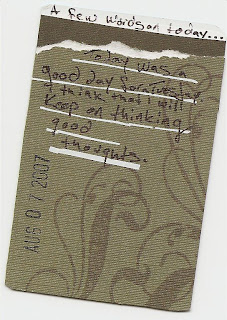 A few words on today...
Today was a
good day for investing
I think that I will
keep on thinking
good
thoughts.
AUG 07 2007